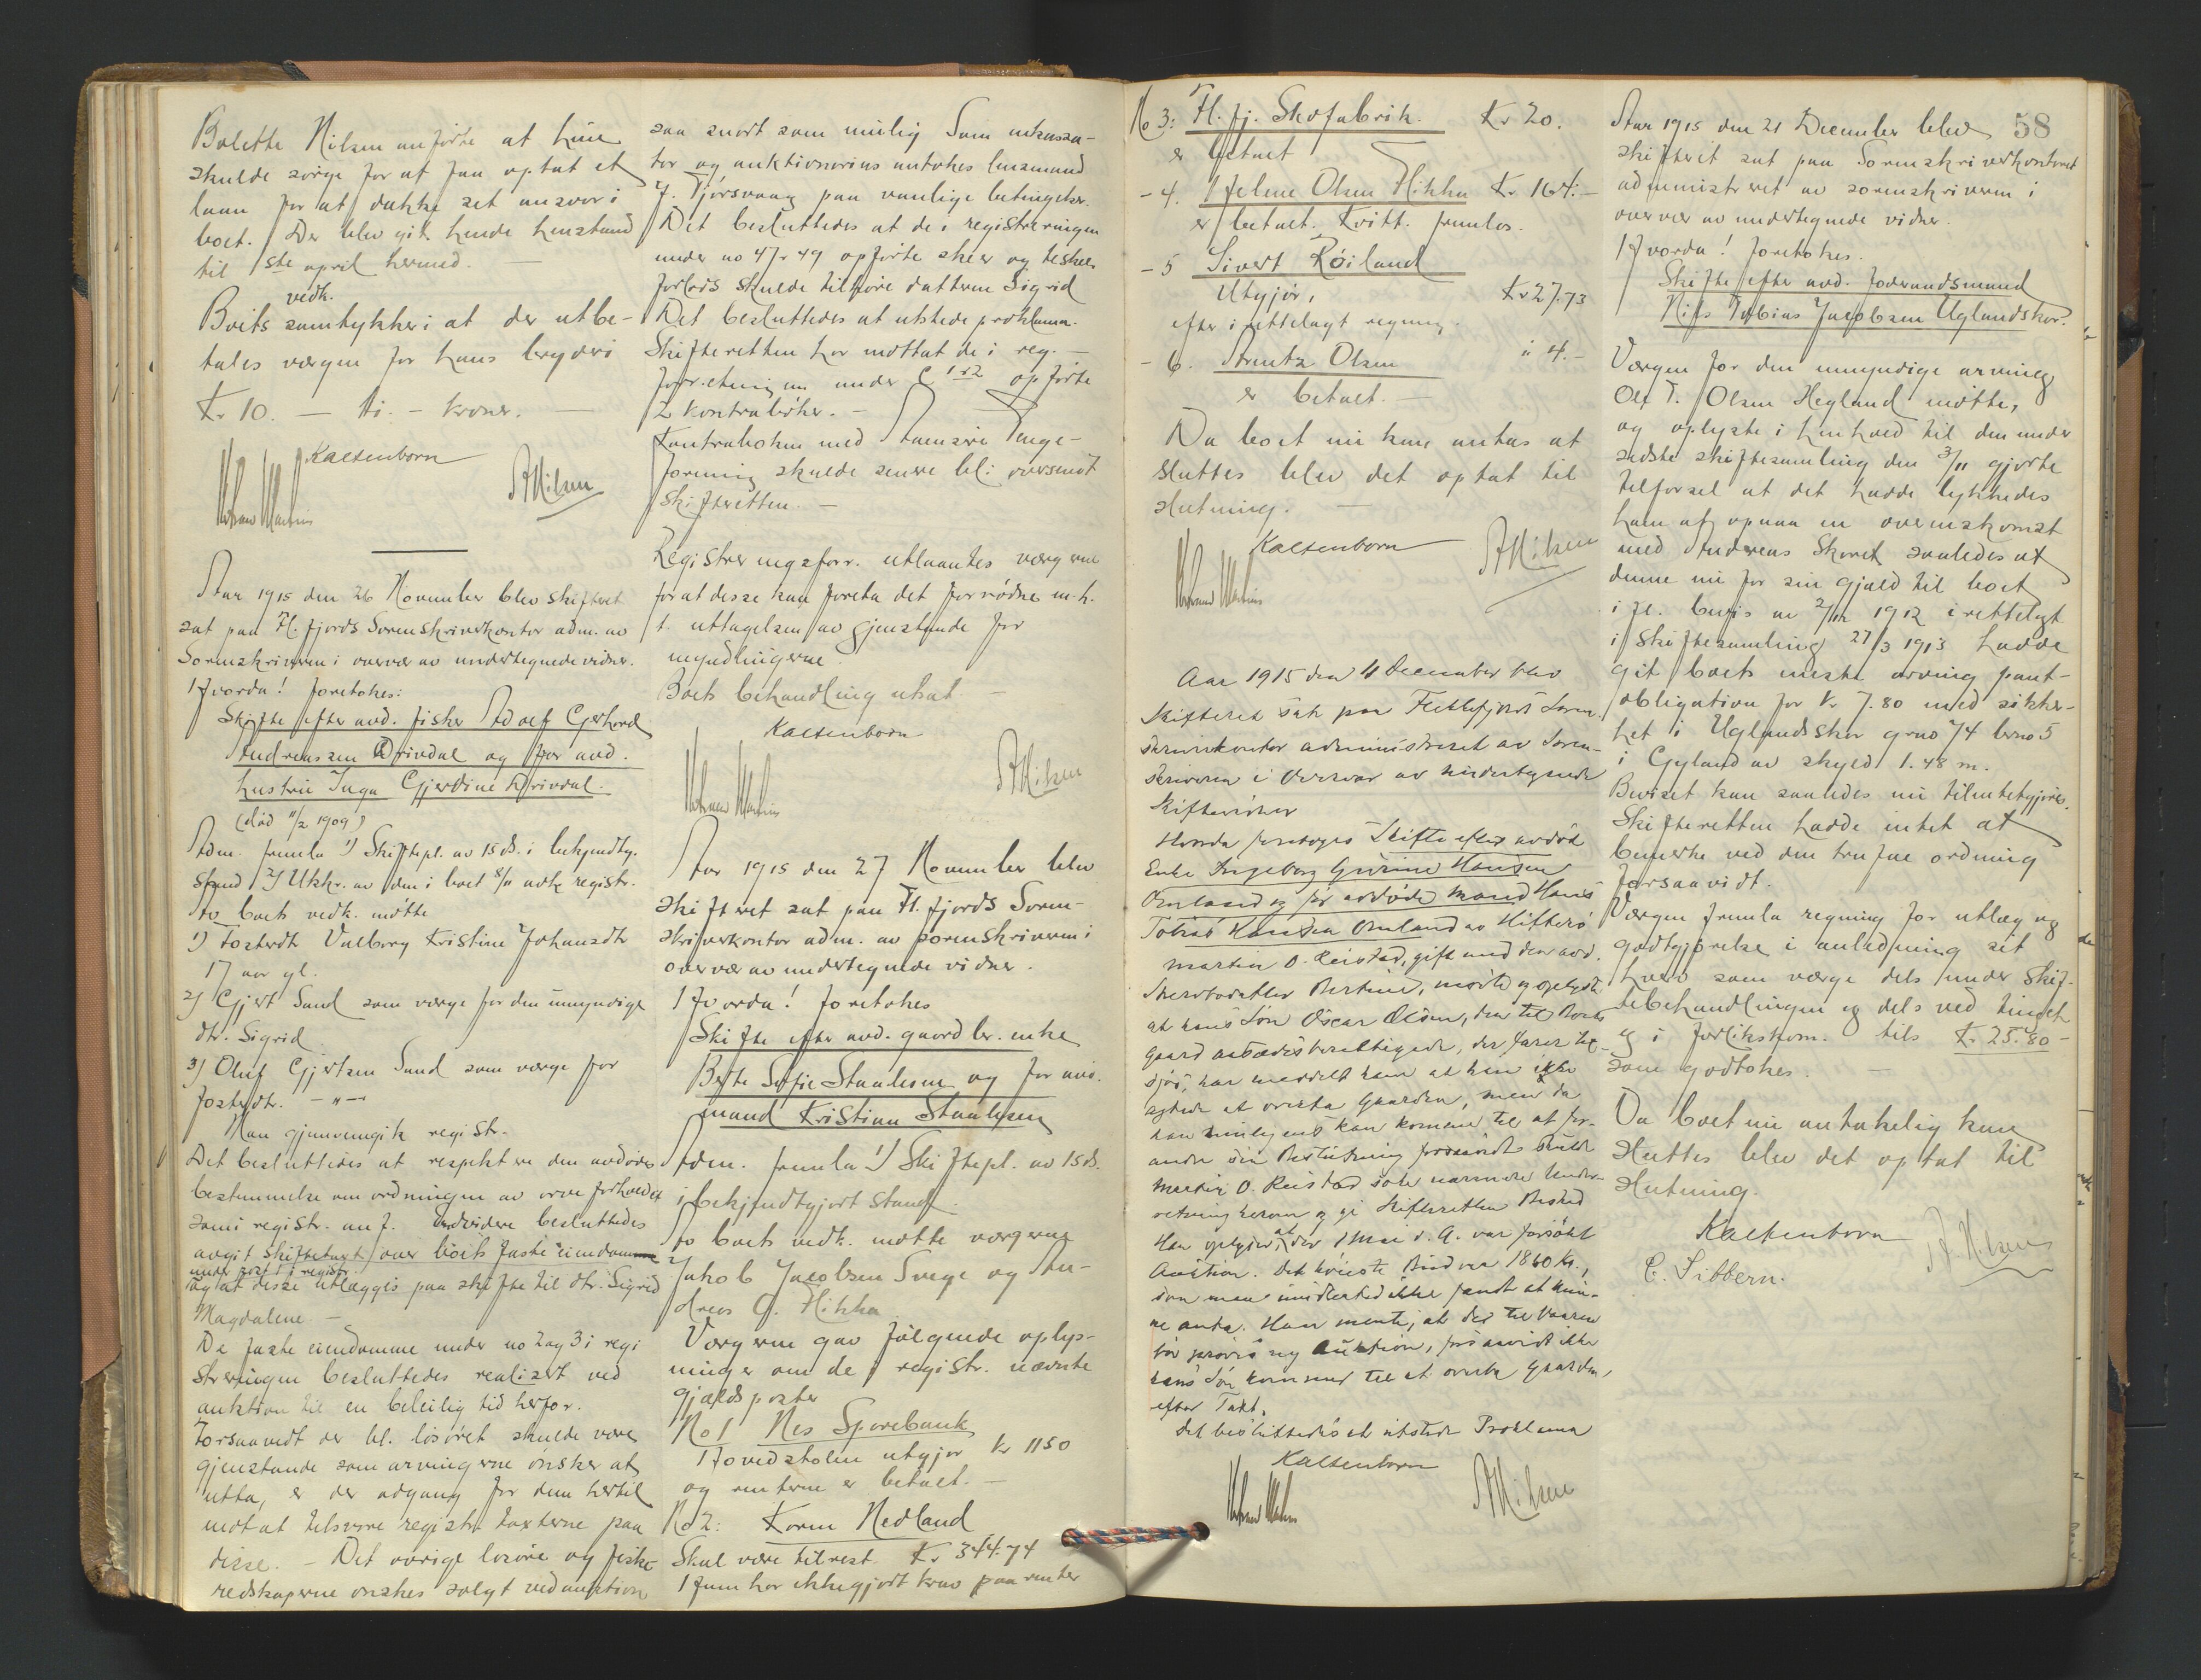 Bolette Nilsen anførte at hun
skulde sørge for at faa optat et
laan for at dække sit ansvar i
boet. Der blev git hende henstand
til 1ste april hermed.
vedk.
Boets samtykker i at der utbe-
tales værgen for hans bryderi
Kr 10. — ti. - kroner. —
Kaltenborn
A Nilsen
Aar 1915 den 26 November blev skifteret
sat paa Fl. fjords Sorenskriverkontor adm. av
Sorenskriveren i overvær av undertegnede vidner.
Hvorda! foretokes:
Skifte efter avd. fisker Adolf Gerhard
Andreassen Drivdal og før avd.
hustru Inga Gjerdine Drivdal.
(død 11/2 1909)
Adm. fremla 1) Skiftepl. av 15 ds. i bekjendtg.
stand 2) Utskr. av den i boet 8/11 avh. registr.
Av boets vedk. møtte
1) Fosterdtr Valborg Kristine Johansdtr
17 aar gl.
2) Gjert Sand som værge for den umyndige
dtr. Sigrid
3) Oluf Gjertsen Sand som værge for
fosterdtr. — " —
Man gjennemgik registr.
Det besluttedes at respektere den avdødes
bestemmelse om ordningen av arveforholdet
som i registr. anf. Endvidere besluttedes
avgit skiftetakst over boets faste eiendomme
under post 1 i registr.
og at disse utlægges paa skifte til dtr. Sigrid
Magdalene —
De faste eiendomme under no 2 og 3 i regi
streringen besluttedes realisert ved
auktion til en beleilig tid herfor.
Forsaavidt der bl. løsøret skulde være
gjenstande som arvingerne ønsker at
utta, er der adgang for dem hertil
mot at tilsvare registr. taxterne paa
disse. — Det øvrige løsøre og fiske-
redskaperne ønskes solgt ved auktion
saa snart som mulig. Som inkassa-
tor og auktionarius antokes lensmand
J. Tjørsvaag paa vanlige betingelser.
Det besluttedes at de i registreringen
under no 47 & 49 opførte skier og teskeer
forlods skulde tilhøre datteren Sigrid
Det besluttedes at utstede proklama.
Skifteretten har mottat de i reg. —
forretningen under C 1 & 2 opførte
2 kontrabøker. —
Kontraboken med Avensire Penge-
forening skulde senere bli oversendt
skifteretten. —
Registreringsforr. utlaantes værgerne
for at desse kan foreta det fornødne m.h.
t. uttagelsen av gjenstande for
myndlingerne.
Boets behandling utsat. —
Kaltenborn
A Nilsen
Aar 1915 den 27 November blev
skifteret sat paa Fl. fjords Soren-
skriverkontor adm. av sorenskriveren i
overvær av undertegnede vidner.
Hvorda! foretokes
Skifte efter avd. gaardbr. enke
Berte Sofie Staalesen og før avd.
mand Kristian Staalesen
Adm. fremla 1) Skiftepl. av 15 ds.
i bekjendtgjort stand.
Av boets vedk. møtte værgerne
Jakob Jacobsen Svege og An-
dreas G. Hikka
Værgerne gav følgende oplys-
ninger om de i registr. nævnte
gjældsposter
No 1 Nes Sparebank
Hovedstolen utgjør Kr 1150
og renterne er betalt. —
No 2: Karen Nedland
Skal være tilrest. Kr 344.74
Hun har ikke gjort krav paa renter
58
No 3: Fl. fj. Skofabrik. Kr 20.
er betalt
- 4. Helene Olsen Hikka Kr 164:-
er betalt. Kvitt. fremlas.
- 5 Sivert Röiland
Utgjør, Kr 27.73
efter i rettelagt regning.
- 6. Arentz Olsen " 4.-
er betalt. —
Da boet nu kan antas at
sluttes blev det optat til
slutning. —
Kaltenborn
A Nilsen
Aar 1915 den 11 December blev
Skifteret sat paa Flekkefjords Soren-
skriverkontor administreret av Soren-
skriveren i Overvær av undertegnede
Skiftevidner
Hvorda foretoges Skifte efter avdöd
Enke Ingeborg Gurine Hansen
Omland og før avdøde Mand Hans
Tobias Hansen Omland av Hitterö
Marten O. Reistad, gift med den avd.
Stervbodatter Bertine, mødte og oplyste
at hans Sön Oscar Olsen, den til Boets
Gaard aasædesberettigede, der farer til
sjøs, har meddelt ham at han ikke
agtede at overta Gaarden, men da
han muligens kan komme til at for-
andre sin Beslutning forsaavidt skulde
Marten O. Reistad søke nærmere Under-
retning herom og gi Skifteretten Besked
Han oplyser, at der 1 Mai d. A. var forsökt
Auktion. Det höieste Bud var 1860 Kr.,
som man imidlertid ikke fandt at kun-
ne anta. Han mente, at der til Vaaren
bør prøves ny Auktion, forsaavidt ikke
hans Sön kommer til at overta Gaarden,
efter Takt.
Det besluttedes at utstede Proklama
Kaltenborn
A Nilsen
Aar 1915 den 21 December blev
skifteret sat paa Sorenskriverkontoret
administreret av sorenskriveren i
overvær av undertegnede vidner.
Hvorda! foretokes.
Skifte efter avd. foderaadsmand
Nils Tobias Jacobsen Uglandskor.
Værgen for den umyndige arving
Olf T. Olsen Hegland møtte,
og oplyste i henhold til den under
sidste skiftesamling den 3/11 gjorte
tilførsel at det hadde lykkedes
ham at opnaa en overenskomst
med Andreas Skoret saaledes at
denne nu for sin gjæld til boet
i fl. bevis av 2/12 1912 irettelagt
i skiftesamling 27/3 1913 hadde
git boets eneste arving pant-
obligation for Kr 7.80 med sikker-
het i Uglandskor grno 74 brno 5
i Gyland av skyld 1.48 m.
Beviset kan saaledes nu tilintetgjøres.
Skifteretten hadde intet at
bemerke ved den trufne ordning
forsaavidt.
Værgen fremla regning for utlæg og
godtgjørelse i anledning sit
hverv som værge dels under skif-
tebehandlingen og dels ved tinget
og i forlikskom. tils Kr 25.80 -
som godtokes. —
Da boet nu antakelig kan
sluttes blev det optat til
slutning.
Kaltenborn
A. Nilsen
C. Sibbern.